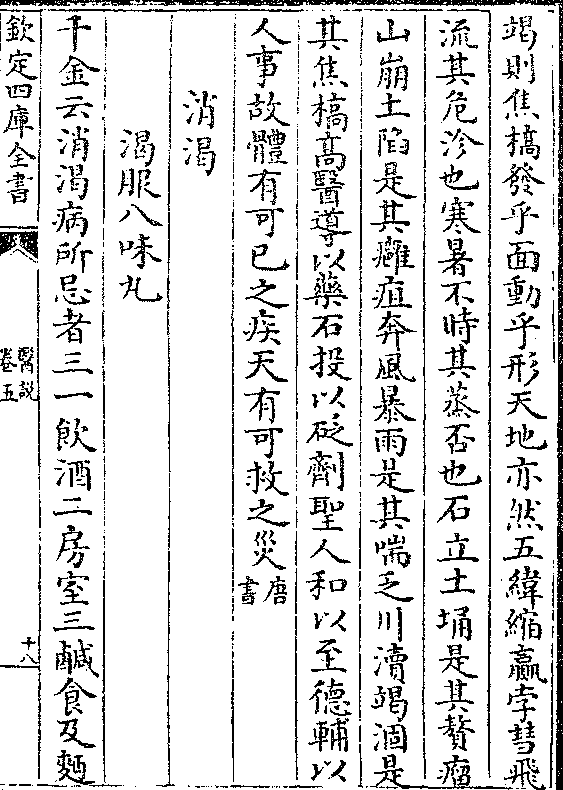 竭則焦槁發乎面動乎形天地亦然五緯縮贏孛彗飛
流其危沴也寒暑不時其蒸否也石立土埇是其贅瘤
山崩土陷是其癰疽奔風暴雨是其喘乏川瀆竭涸是
其焦槁高醫導以藥石投以砭劑聖人和以至德輔以
人事故體有可已之疾天有可救之災唐書
消渴
渴服八味丸
千金云消渴病所忌者三一飲酒二房室三鹹食及麵
欽定四庫全書
醫説
卷五
十八